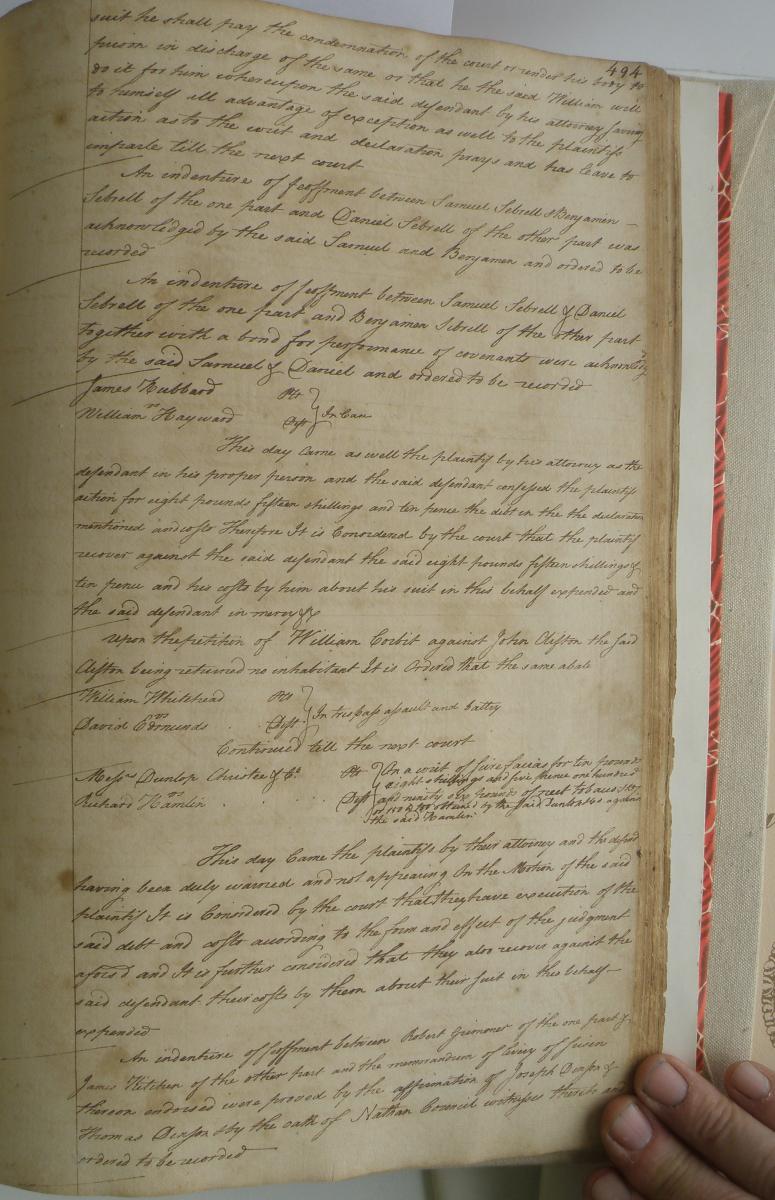 494
suit he shall pay the condemnation of the court or render his body to
prison in discharge of the same or that he the said William will
do it for him whereupon the said defendant by his attorney saving
to himself all advantage of exception as well to the plaintifs
action as to the writ and declaration prays and has leave to
imparle till the next court
An indenture of feoffment between Samuel Sebrell & Benjamen
Sebrell of the one part and Daniel Sebrell of the other part was
acknowledged by the said Samuel and Benjamen and ordered to be
recorded
An indenture of feoffment between Samuel Sebrell & Daniel
Sebrell of the one part and Benjamen Sebrell of the other part
together with a bond for performance of covenants were acknowledg
by the said Samuel & Daniel and ordered to be recorded
James Hubbard Plt
vs In Case
William Hayward Deft
This day came as well the plaintif by his attorney as the
defendant in his proper person and the said defendant confessed the plaintifs
action for eight pounds fifteen shillings and ten pence the debt in the the declaration
mentioned and costs Therefore It is Considered by the court that the plaintif
recover against the said defendant the said eight pounds fifteen shillings &
ten pence and his costs by him about his suit in this behalf expended and
the said defendant in mercy &c
Upon the petition of William Corbit against John Clifton the said
Clifton being returned no inhabitant It is Ordered that the same abate
William Whitehead Plt
vs In trespass assault and battey
David Edmunds Deft
Continued till the next court
Messrs Dunlop Christee & Co Plt On a writ of scire facias for ten pounds
vs eight shillings and five pence one hundred
Richard Hamlin Deft and ninety six pounds of neet tobacco
obtained by the said Dunlop & Co against
the said Hamlin
This day Came the plaintifs by their attorney and the defend
having been duly warned and not appearing On the Motion of the said
plaintif It is Considered by the court that they have execution of the
said debt and costs according to the form and effect of the judgment
afores'd and It is further considered that they also recover against the
said defendant their costs by them about their suit in this behalf
expended
An indenture of feoffment between Robert of the one part &
James Kitchen of the other part and the memorandum of livery of seisen
thereon endorsed were proved by the affirmation of Joseph Denson &
Thomas Denson & by the oath of Nathan Council witnesses thereto and
ordered to be recorded